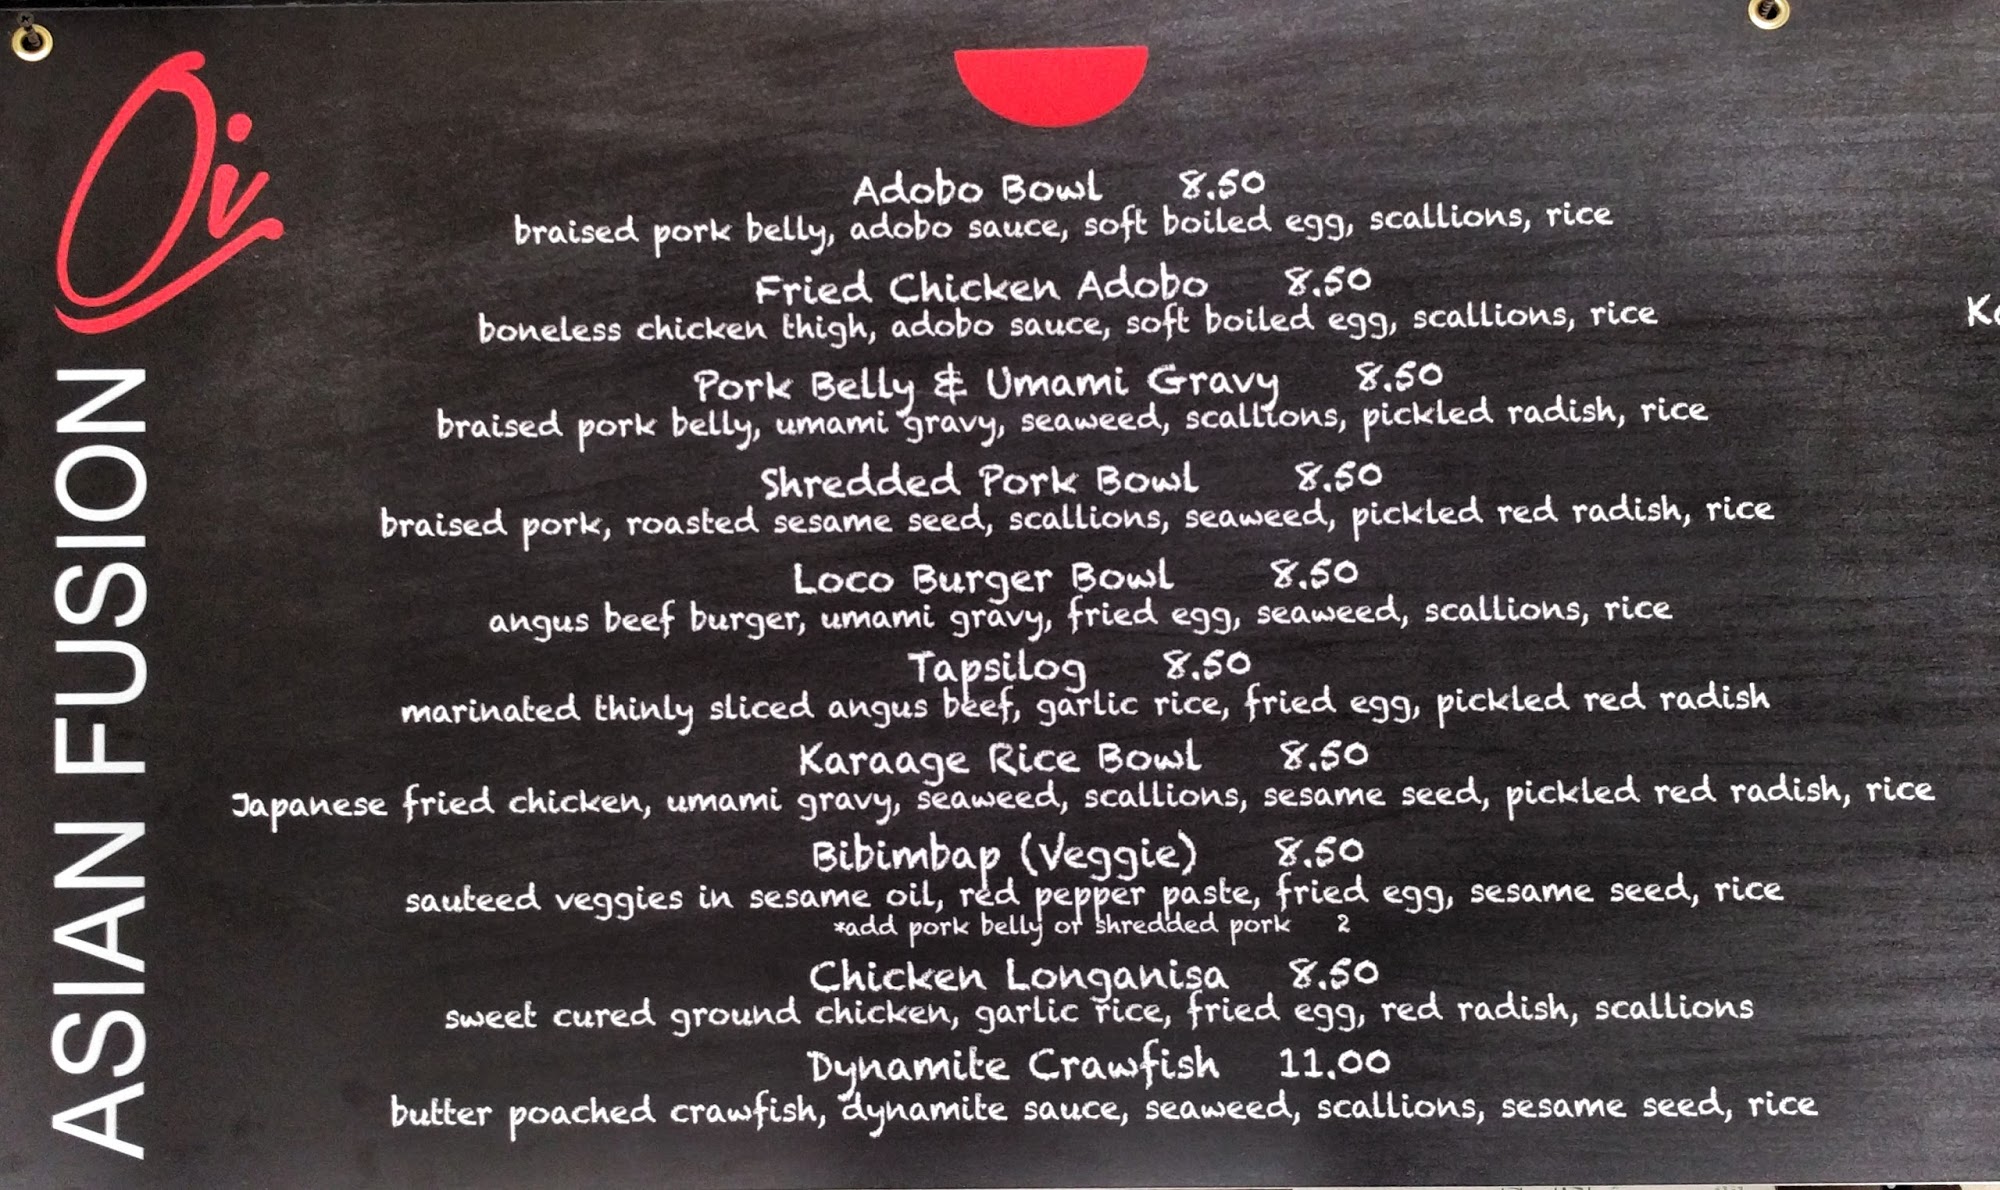 Oi
ASIAN FUSION
Adobo Bowl 8.50
braised pork belly, adobo sauce, soft boiled egg, scallions, rice
Fried Chicken Adobo 8.50
boneless chicken thigh, adobo sauce, soft boiled egg, scallions, rice
Pork Belly & Umami Gravy 8.50
braised pork belly, umami gravy, seaweed, scallions, pickled radish, rice
Shredded Pork Bowl 8.50
braised pork, roasted sesame seed, scallions, seaweed, pickled red radish, rice
Loco Burger Bowl 8.50
angus beef burger, umami gravy, fried egg, seaweed, scallions, rice
Tapsilog 8.50
marinated thinly sliced angus beef, garlic rice, fried egg, pickled red radish
Karaage Rice Bowl 8.50
Japanese fried chicken, umami gravy, seaweed, scallions, sesame seed, pickled red radish, rice
Bibimbap (Veggie) 8.50
sauteed veggies in sesame oil, red pepper paste, fried egg, sesame seed, rice
*add pork belly or shredded pork 2
Chicken Longanisa 8.50
sweet cured ground chicken, garlic rice, fried egg, red radish, scallions
Dynamite Crawfish 11.00
butter poached crawfish, dynamite sauce, seaweed, scallions, sesame seed, rice